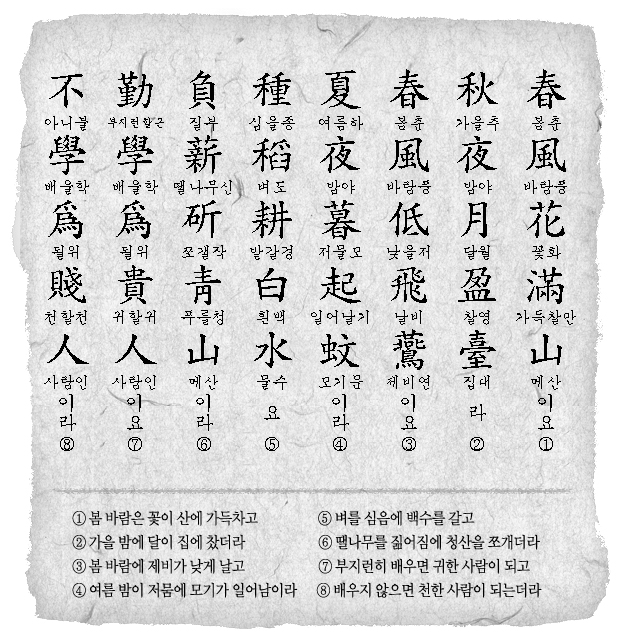 春 봄춘 風 바람풍 花 꽃화 滿 가득찰만 山 메산 이요 ①
秋 가을추 夜 밤야 月 달월 盈 찰영 臺 집대 라 ②
春 봄춘 風 바람풍 低 낮을저 飛 날비 鷰 제비연 이요 ③
夏 여름하 夜 밤야 暮 저물모 起 일어날기 蚊 모기문 이라 ④
種 심을종 稻 벼도 耕 밭갈경 白 흰백 水 물수 요 ⑤
負 질부 薪 땔나무신 斫 쪼갤작 靑 푸를청 山 메산 이라 ⑥
勤 부지런할근 學 배울학 爲 될위 貴 귀할귀 人 사람인 이요 ⑦
不 아니불 學 배울학 爲 될위 賤 천할천 人 사람인 이라 ⑧
① 봄 바람은 꽃이 산에 가득차고
② 가을 밤에 달이 집에 찼더라
③ 봄 바람에 제비가 낮게 날고
④ 여름 밤이 저뭄에 모기가 일어남이라
⑤ 벼를 심음에 백수를 갈고
⑥ 땔나무를 짊어짐에 청산을 쪼개더라
⑦ 부지런히 배우면 귀한 사람이 되고
⑧ 배우지 않으면 천한 사람이 되는더라